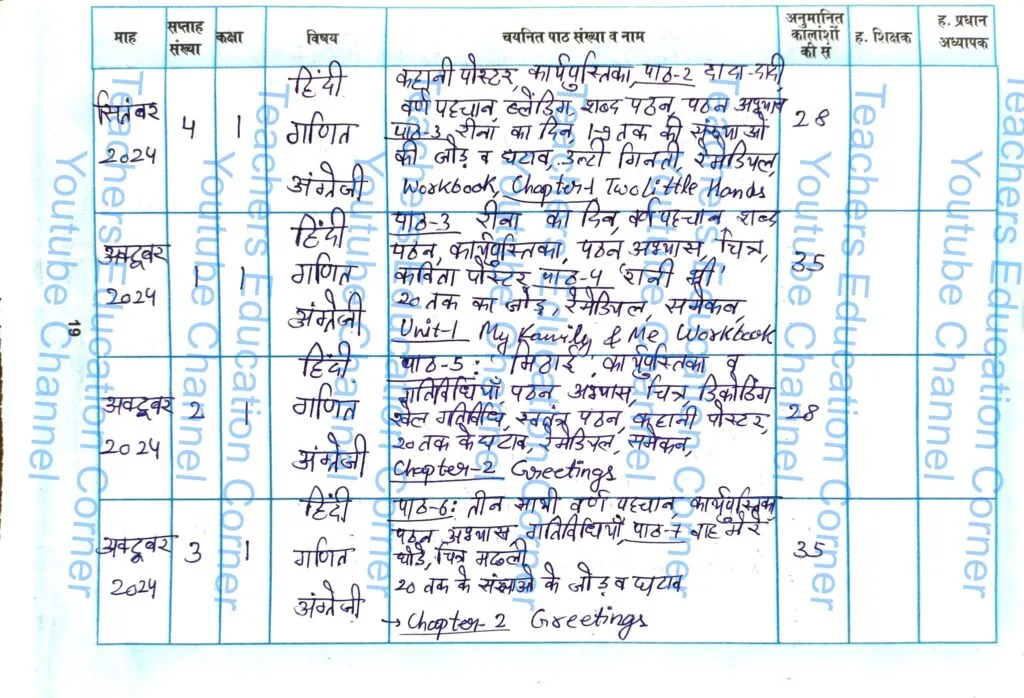 माह सप्ताह संख्या कक्षा विषय चयनित पाठ संख्या व नाम अनुमानित कालांशों की सं ह. शिक्षक ह. प्रधान अध्यापक
सितंबर 2024 4 1 28
हिंदी
गणित
अंग्रेजी
कहानी पोस्टर, कार्यपुस्तिका, पाठ-2 दादा-दादी,
वर्ण पहचान, ब्लेंडिंग, शब्द पठन, पठन अभ्यास
पाठ-3 रीना का दिन, 1-9 तक की संख्याओं
की जोड़ व घटाव, उल्टी गिनती, रेमेडियल,
Workbook, Chapter-1 Two Little Hands
अक्टूबर 2024 1 1 35
हिंदी
गणित
अंग्रेजी
पाठ-3 रीना का दिन, वर्ण पहचान, शब्द
पठन, कार्यपुस्तिका, पठन अभ्यास, चित्र,
कविता पोस्टर, पाठ-4 'रानी भी'
20 तक का जोड़, रेमेडियल, समेकन,
Unit-1 My Family & Me Workbook
अक्टूबर 2024 2 1 28
हिंदी
गणित
अंग्रेजी
पाठ-5: मिठाई, कार्यपुस्तिका व
गतिविधियाँ, पठन अभ्यास, चित्र, डिकोडिंग
खेल गतिविधि, स्वतंत्र पठन, कहानी पोस्टर,
20 तक के घटाव, रेमेडियल, समेकन,
Chapter-2 Greetings
अक्टूबर 2024 3 1 35
हिंदी
गणित
अंग्रेजी
पाठ-6: तीन साथी, वर्ण पहचान, कार्यपुस्तिका
पठन अभ्यास, गतिविधियाँ, पाठ-7 वाह मेरे
घोड़े, चित्र मछली
20 तक के संख्याओं के जोड़ व घटाव
→ Chapter-2 Greetings
19
Teachers Education Corner
Youtube Channel
Teachers Education Corner
Youtube Channel
Teachers Education Corner
Youtube Channel
Teachers Education Corner
Youtube Channel